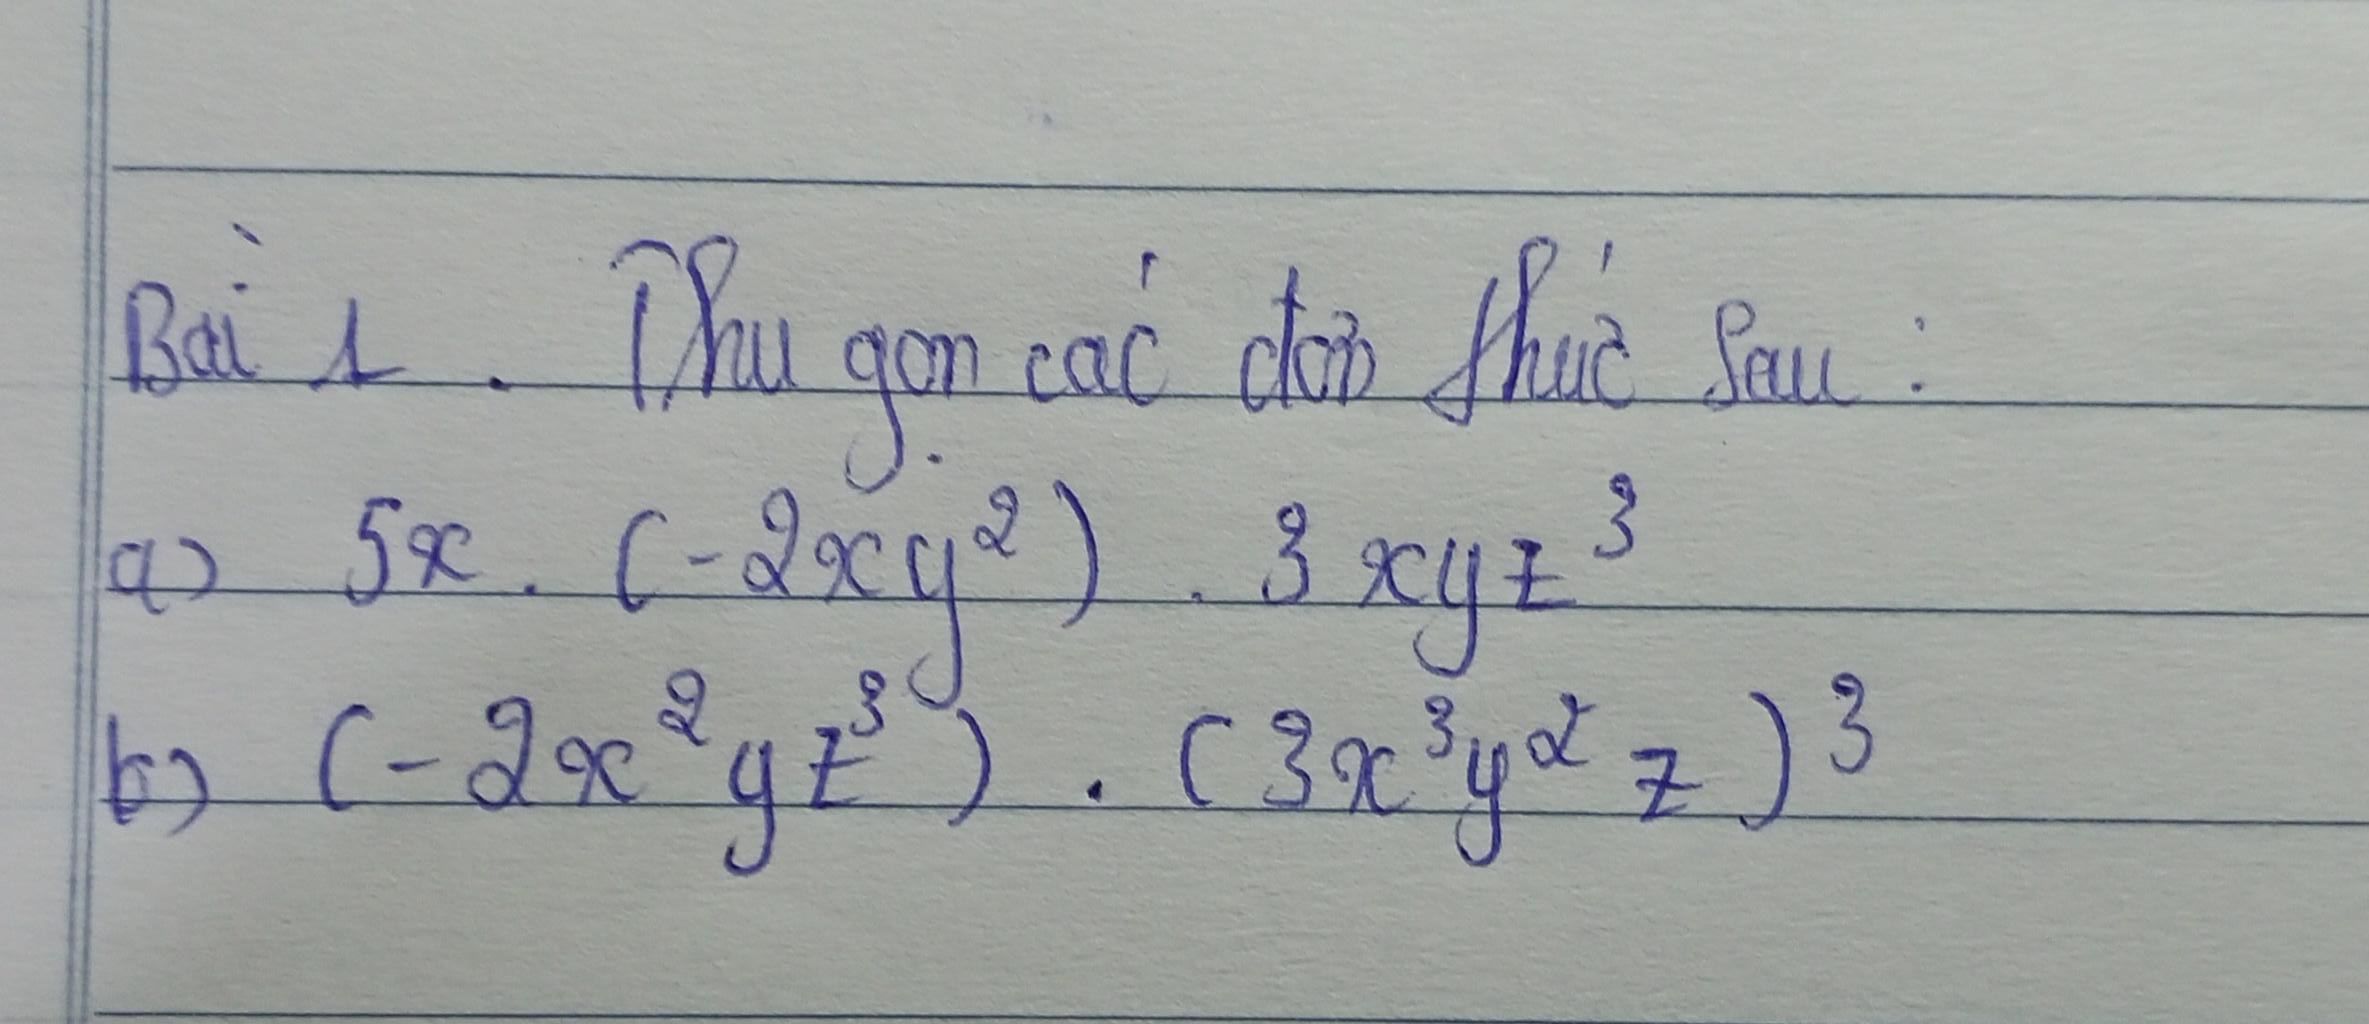 Bài 1. Thu gọn các đơn thức sau:
a) 5x. (-2xy²). 3xyz³
b) (-2x²yz³). (3x³y²z)³